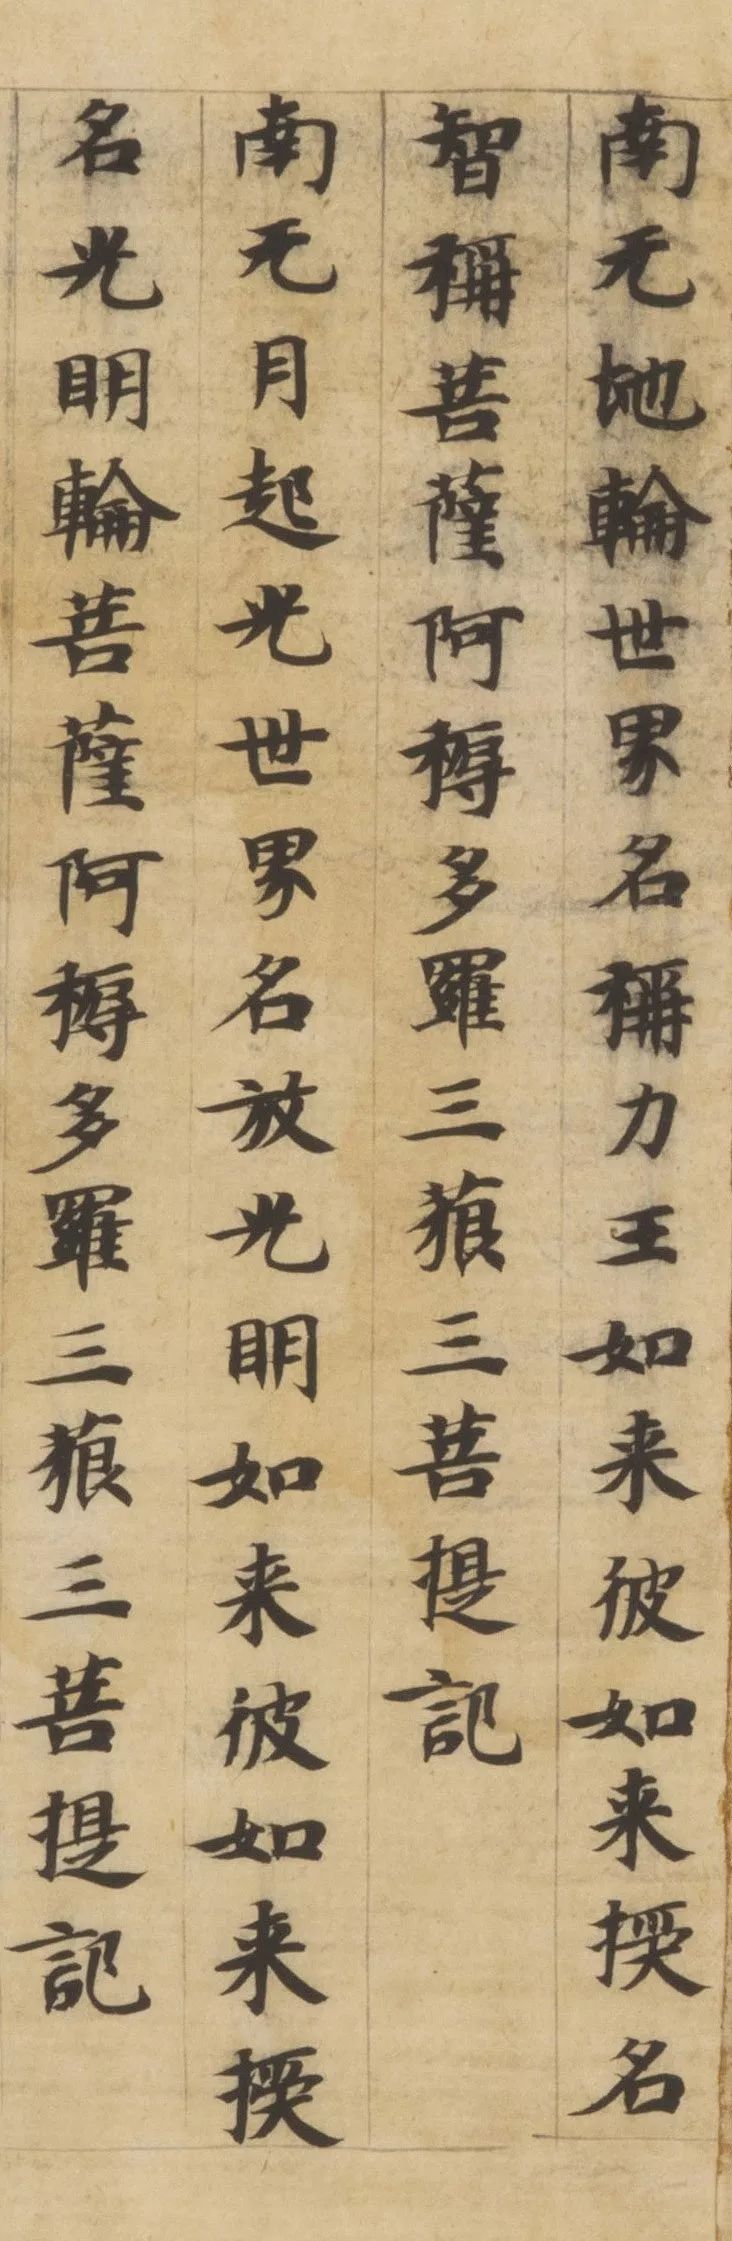 南无地輪世界名稱力王如来彼如来授名
智稱菩薩阿耨多羅三藐三菩提記
南无月起光世界名放光明如来彼如来授
名光明輪菩薩阿耨多羅三藐三菩提記